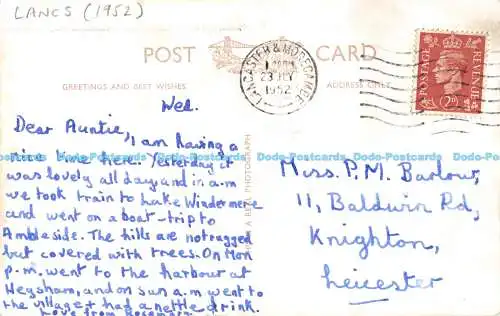 LANCS (1952)
POST CARD
GREETINGS AND BEST WISHES
ADDRESS ONLY
LANCASTER & MORECAMBE
23 JLY
1952
POSTAGE REVENUE
2D
Wed.
Dear Auntie, I am having a
nice time here. Yesterday it
was lovely all day and in a.m
we took train to Lake Windermere
and went on a boat-trip to
Ambleside. The hills are not rugged
but covered with trees. On Mon
p.m. went to the harbour at
Heysham, and on sun a.m went to
the village & had a nettle drink.
Love from Rosemary
Miss. P.M. Barlow,
11, Baldwin Rd,
Knighton,
Leicester
A REAL PHOTOGRAPH
Dodo-Postcards Dodo-Postcards Dodo-Postcards Dodo-Postcards Dodo-Postcards